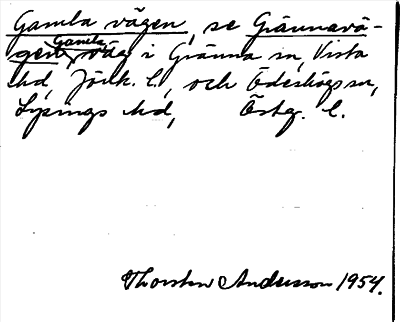 Gamla vägen, se Grännavä-
gen, Gamla väg i Gränna sn, Vista
hd, Jönk. l., och Ödeshögs sn,
Lysings hd, Östg. l.
Thorsten Andersson 1954.